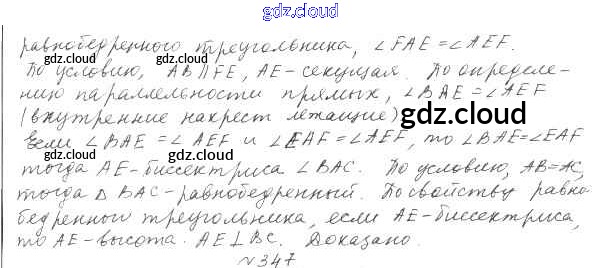 gdz.cloud
равнобедренного треугольника, ∠FAE = ∠AEF.
gdz.cloud
По условию, AB∥FE, AE - секущая. По определе-
нию параллельности прямых, ∠BAE = ∠AEF
(внутренние накрест лежащие)
gdz.cloud
gdz.cloud
Если ∠BAE = ∠AEF и ∠EAF = ∠AEF, то ∠BAE = ∠EAF
gdz.cloud
тогда AE - биссектриса ∠BAC. По условию, AB = AC,
тогда △BAC - равнобедренный. По свойству равно
бедренного треугольника, если AE - биссектриса,
то AE - высота. AE ⊥ BC. Доказано.
gdz.cloud
gdz.cloud
№347